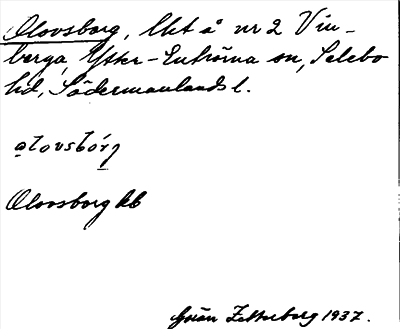 Olovsborg, lht å nr 2 Vin-
berga, Ytter-Enhörna sn, Selebo
hd, Södermanlands l.
olovsbórj
Olovsborg hb
Göran Zetterberg 1937.